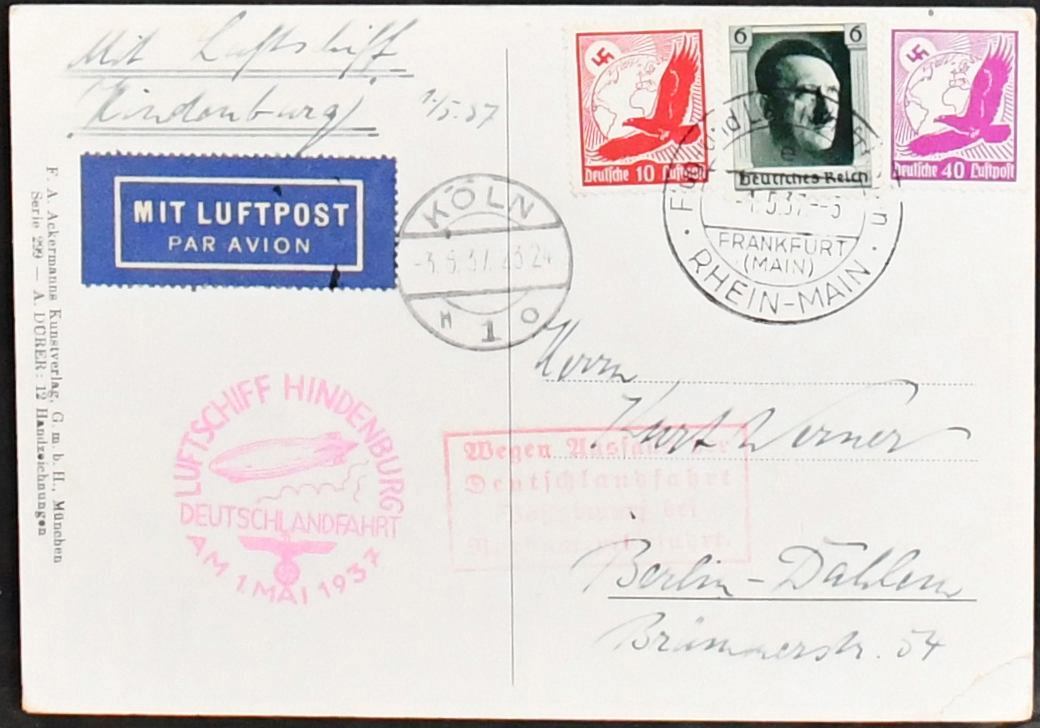 Mit Luftschiff
Hindenburg
1./5.37
MIT LUFTPOST
PAR AVION
F. A. Ackermanns Kunstverlag, G. m. b. H., München
Serie 299 — A. DÜRER: 12 Handzeichnungen
KÖLN
37 2324
1
10
Deutsche 10 Luftpost
6 6
Deutsches Reich
40
Deutsche 40 Luftpost
-1.5.37--5
FRANKFURT
(MAIN)
RHEIN-MAIN
LUFTSCHIFF HINDENBURG
DEUTSCHLANDFAHRT
AM 1. MAI 1937
Wegen Ausfall der
Deutschlandfahrt
bei
Herrn
Kurt Werner
Berlin-Dahlem
Brümmerstr. 54